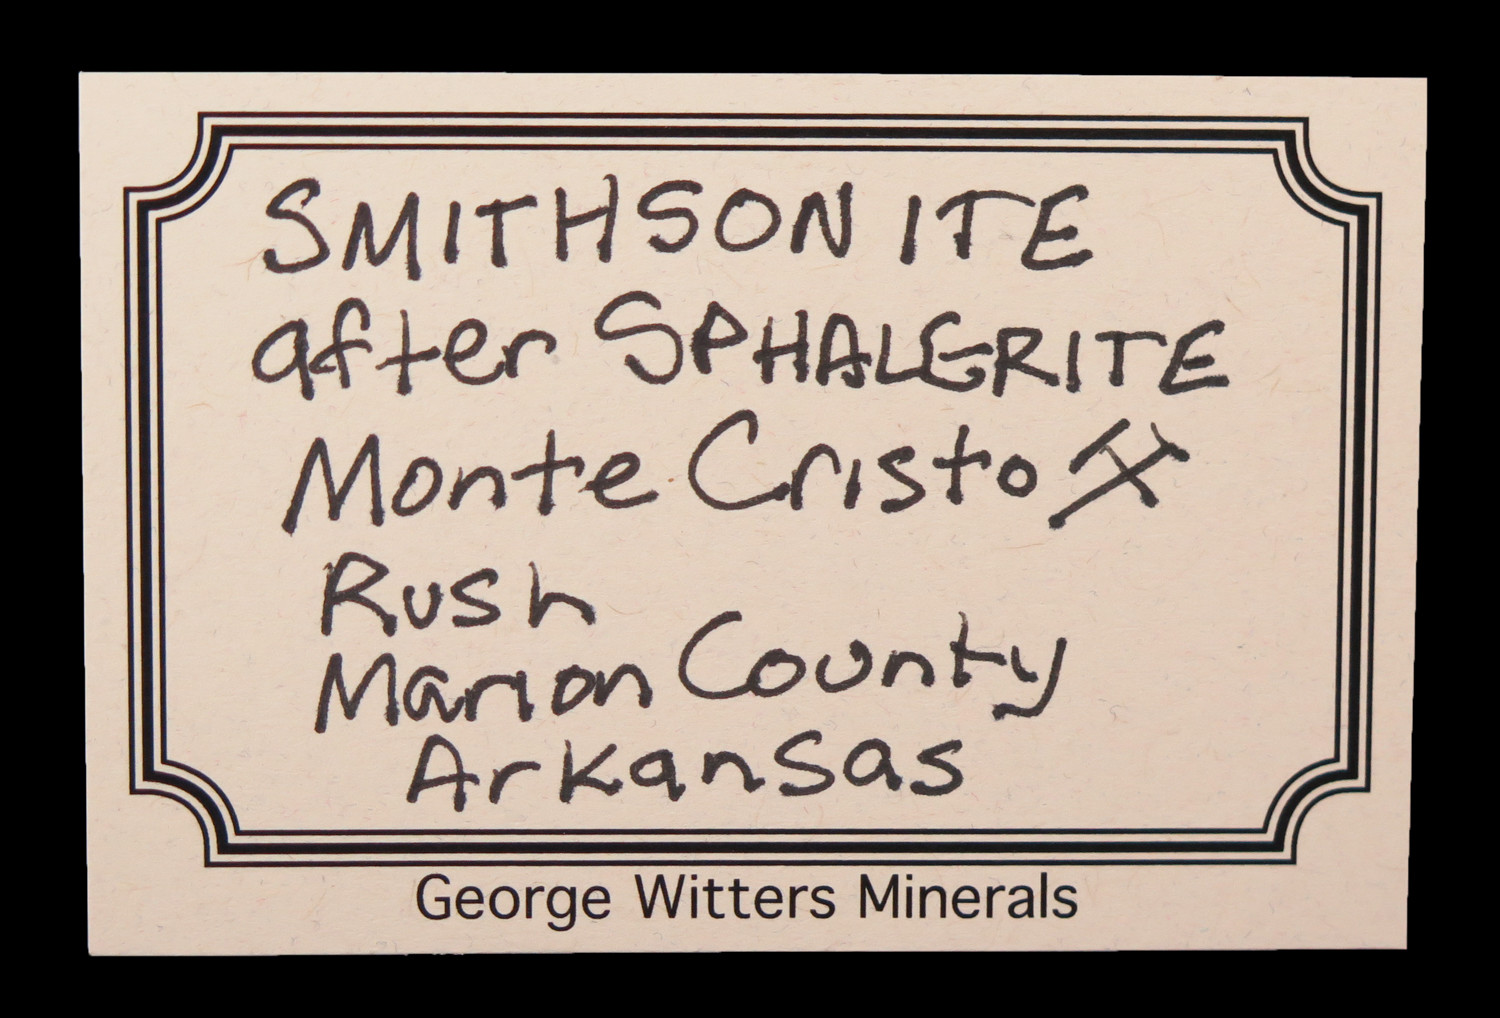 SMITHSONITE
after SPHALERITE
Monte Cristo ⚒
Rush
Marion County
Arkansas
George Witters Minerals